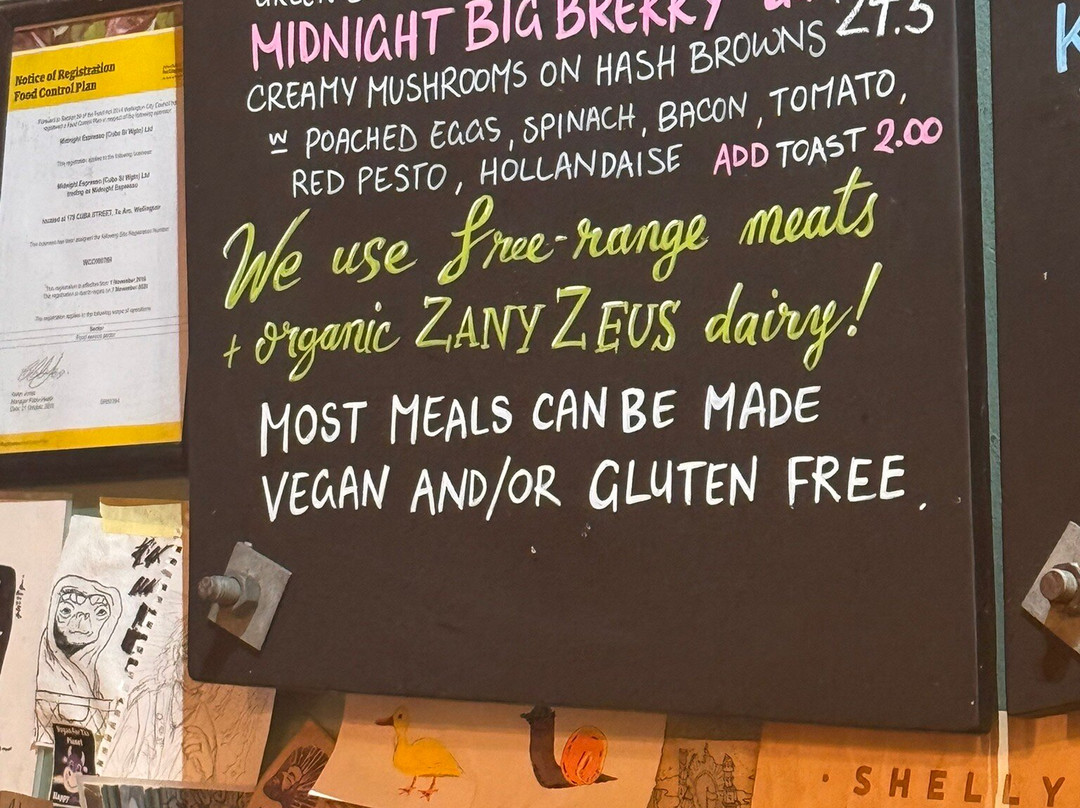 MIDNIGHT BIG BREKKY
27.5
CREAMY MUSHROOMS ON HASH BROWNS
w POACHED EGGS, SPINACH, BACON, TOMATO,
RED PESTO, HOLLANDAISE ADD TOAST 2.00
We use free-range meats
+ organic ZANY ZEUS dairy!
MOST MEALS CAN BE MADE
VEGAN AND/OR GLUTEN FREE.
Notice of Registration
Food Control Plan
Midnight Espresso (Cuba St Wgtn) Ltd
Midnight Espresso (Cuba St Wgtn) Ltd
trading as Midnight Espresso
located at 178 CUBA STREET, Te Aro, Wellington
Sector
Food service sector
K
· SHELLY